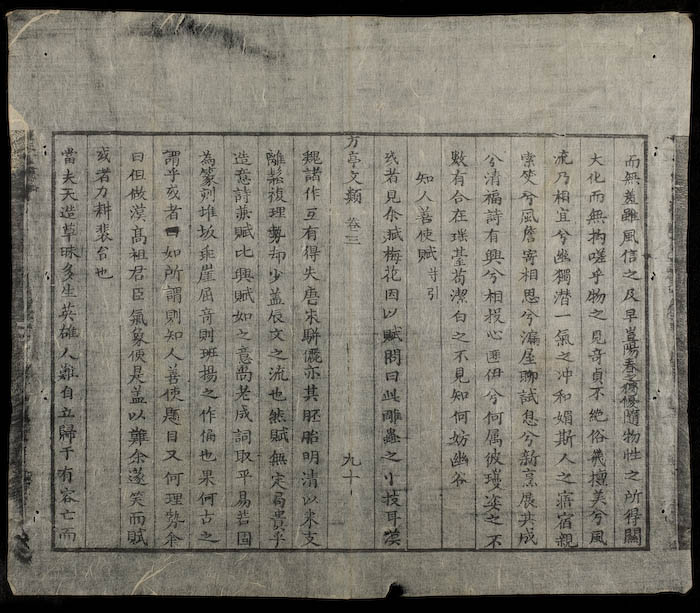 而無羞雖風信之及早豈陽春之獨優隨物性之所得關
大化而無拘嗟乎物之見奇貞不絶俗幾擅美兮風
流乃相宜兮幽獨潜一氣之冲和媚斯人之寤宿親
索笑兮風簷寄相思兮漏屋聊試息兮新烹展其成
兮清福詩有興兮相投心匪伊兮何属彼瓊姿之不
數有合在璞茎苟潔白之不見知何妨幽谷
知人善使賦 并引
或者見余赋梅花因以賦問曰此雕蟲之小技耳漢
魏諸作互有得失唐宋騈儷亦其胚胎明清以來支
離鬆復理勢却少盖辰文之流也然賦無定局貴乎
造意詩兼賦比興賦如之意尚老成詞取平易若圖
為篆刻堆垜乖崖屈奇則班揚之作偏也果何古之
謂乎或者曰如所謂則知人善使題目又何理勢余
曰但做漢髙祖君臣氣象便是盖以難余遂笑而賦
或者力耕裴台也
當夫天造草昧多生英雄人難自立歸于有容亡而
方亭文類 卷三
九十